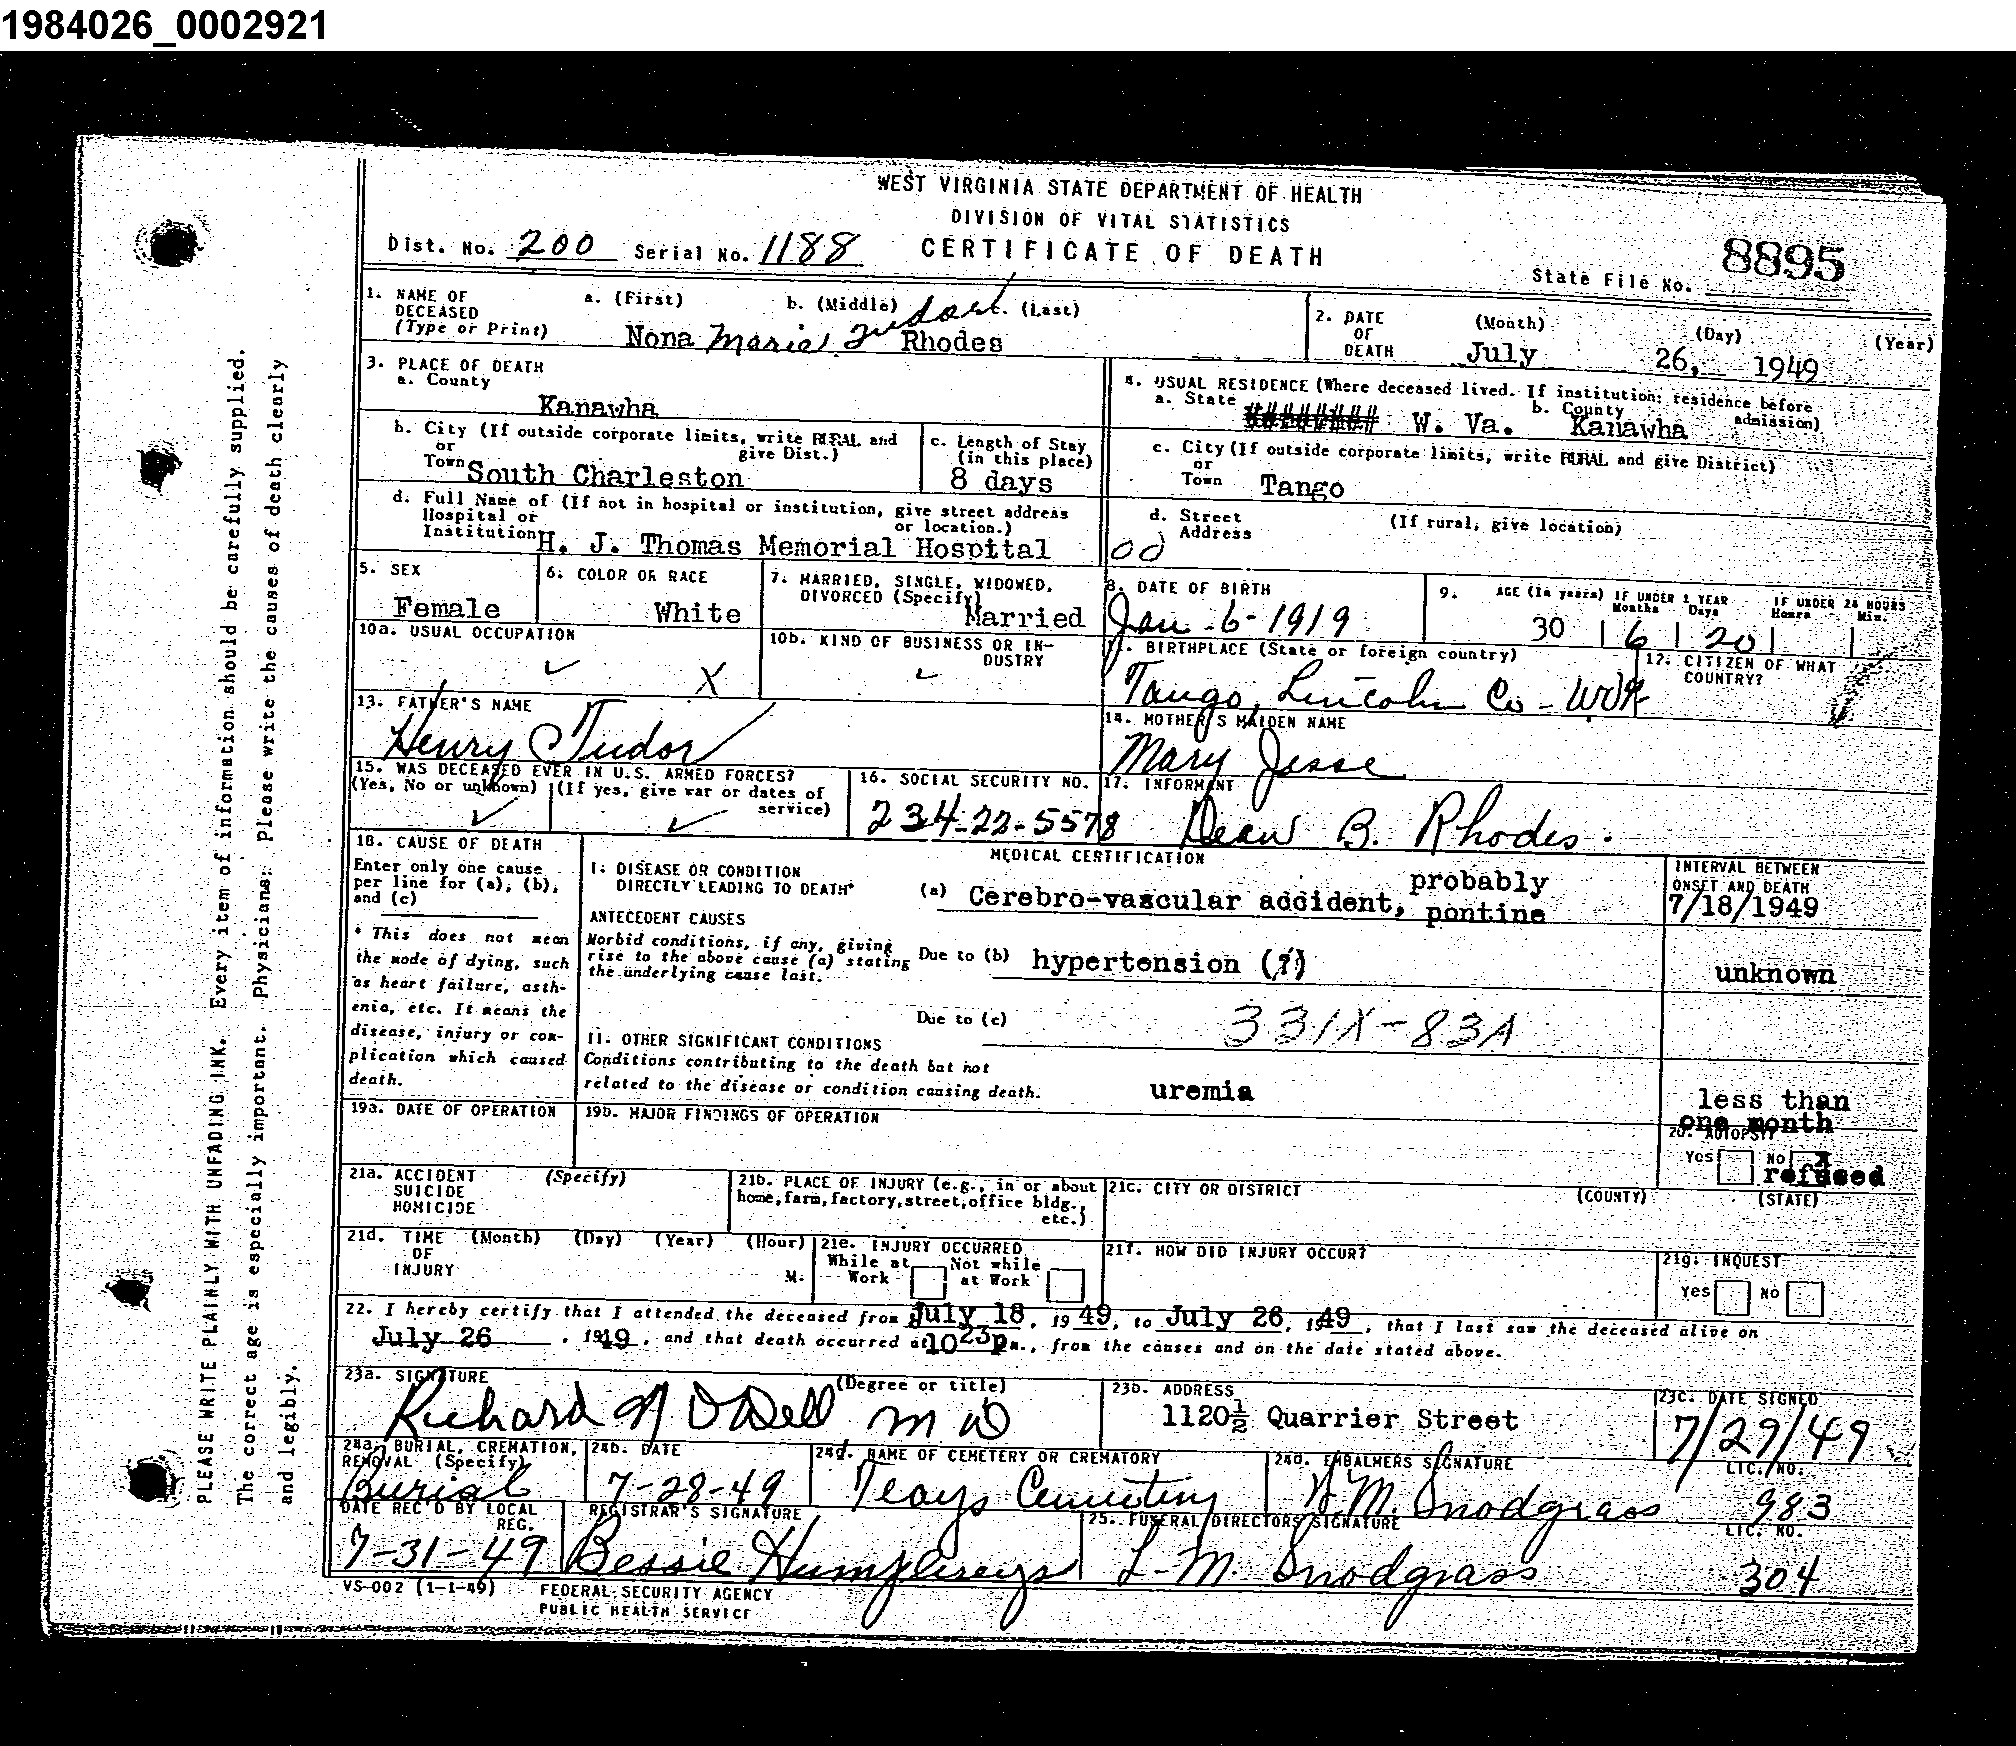 1984026_0002921
WEST VIRGINIA STATE DEPARTMENT OF HEALTH
DIVISION OF VITAL STATISTICS
Dist. No. 200 Serial No. 1188 CERTIFICATE OF DEATH
State File No. 8895
1. NAME OF DECEASED (Type or Print) a. (First) b. (Middle) (Last)
Nona Marie Tudor Rhodes
2. DATE OF DEATH (Month) (Day) (Year)
July 26, 1949
3. PLACE OF DEATH
a. County
Kanawha
4. USUAL RESIDENCE (Where deceased lived. If institution: residence before admission)
a. State ######## W. Va. b. County Kanawha
b. City (If outside corporate limits, write RURAL and give Dist.)
or Town South Charleston
c. Length of Stay (in this place)
8 days
c. City (If outside corporate limits, write RURAL and give District)
or Town Tango
d. Full Name of (If not in hospital or institution, give street address or location.)
Hospital or Institution H. J. Thomas Memorial Hospital
d. Street Address (If rural, give location)
00
5. SEX
Female
6. COLOR OR RACE
White
7. MARRIED, SINGLE, WIDOWED, DIVORCED (Specify)
Married
8. DATE OF BIRTH
Jan-6-1919
9. AGE (In years) IF UNDER 1 YEAR Months Days IF UNDER 24 HOURS Hours Min.
30 6 20
10a. USUAL OCCUPATION
X
10b. KIND OF BUSINESS OR INDUSTRY
11. BIRTHPLACE (State or foreign country)
Tango, Lincoln Co - WVA
12. CITIZEN OF WHAT COUNTRY?
13. FATHER'S NAME
Henry Tudor
14. MOTHER'S MAIDEN NAME
Mary Jesse
15. WAS DECEASED EVER IN U.S. ARMED FORCES?
(Yes, No or unknown) (If yes, give war or dates of service)
16. SOCIAL SECURITY NO.
234-22-5578
17. INFORMENT
Dean B. Rhodes.
18. CAUSE OF DEATH
Enter only one cause per line for (a), (b), and (c)
* This does not mean the mode of dying, such as heart failure, asthenia, etc. It means the disease, injury or complication which caused death.
MEDICAL CERTIFICATION
INTERVAL BETWEEN ONSET AND DEATH
I. DISEASE OR CONDITION DIRECTLY LEADING TO DEATH*
(a) Cerebro-vascular addident, probably pontine
7/18/1949
ANTECEDENT CAUSES
Morbid conditions, if any, giving rise to the above cause (a) stating the underlying cause last.
Due to (b) hypertension (?)
unknown
Due to (c)
331X-83A
II. OTHER SIGNIFICANT CONDITIONS
Conditions contributing to the death but not related to the disease or condition causing death.
uremia
less than one month
19a. DATE OF OPERATION
19b. MAJOR FINDINGS OF OPERATION
20. AUTOPSY
Yes No x
refused
21a. ACCIDENT SUICIDE HOMICIDE (Specify)
21b. PLACE OF INJURY (e.g., in or about home, farm, factory, street, office bldg., etc.)
21c. CITY OR DISTRICT (COUNTY) (STATE)
21d. TIME OF INJURY (Month) (Day) (Year) (Hour) M.
21e. INJURY OCCURRED
While at Work Not while at Work
21f. HOW DID INJURY OCCUR?
21g. INQUEST
Yes No
22. I hereby certify that I attended the deceased from July 18, 19 49, to July 26, 1949, that I last saw the deceased alive on
July 26, 1949, and that death occurred at 10 23 p m., from the causes and on the date stated above.
23a. SIGNATURE (Degree or title)
Richard N O'Dell M D
23b. ADDRESS
1120½ Quarrier Street
23c. DATE SIGNED
7/29/49
24a. BURIAL, CREMATION, REMOVAL (Specify)
Burial
24b. DATE
7-28-49
24d. NAME OF CEMETERY OR CREMATORY
Teays Cemetery
24d. EMBALMERS SIGNATURE LIC. NO.
H M. Snodgrass 983
DATE REC'D BY LOCAL REG.
7-31-49
REGISTRAR'S SIGNATURE
Bessie Humphreys
25. FUNERAL DIRECTORS SIGNATURE LIC. NO.
L. M. Snodgrass 304
VS-002 (1-1-49) FEDERAL SECURITY AGENCY
PUBLIC HEALTH SERVICE
PLEASE WRITE PLAINLY WITH UNFADING INK. Every item of information should be carefully supplied.
The correct age is especially important. Physicians: Please write the causes of death clearly
and legibly.